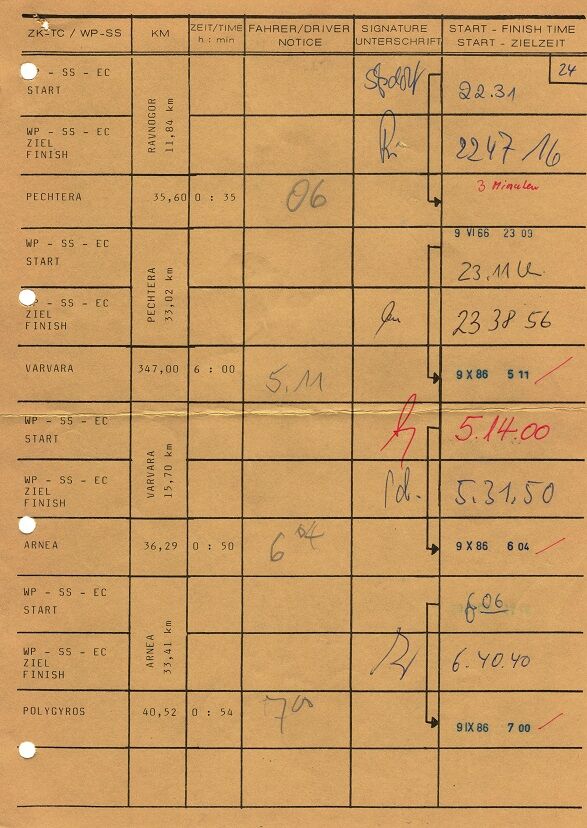 ZK-TC / WP-SS KM ZEIT/TIME h : min FAHRER/DRIVER NOTICE SIGNATURE UNTERSCHRIFT START - FINISH TIME START - ZIELZEIT
24
WP - SS - EC
START
22.31
RAVNOGOR
11,84 km
WP - SS - EC
ZIEL
FINISH
2247 16
3 Minuten
PECHTERA 35,60 0 : 35 06
9 VI 66 23 09
WP - SS - EC
START
23.11
PECHTERA
33,02 km
WP - SS - EC
ZIEL
FINISH
23 38 56
VARVARA 347,00 6 : 00 5.11 9 X 86 5 11
WP - SS - EC
START
5.14.00
VARVARA
15,70 km
WP - SS - EC
ZIEL
FINISH
5.31.50
ARNEA 36,29 0 : 50 6 04 9 X 86 6 04
WP - SS - EC
START
6 06
ARNEA
33,41 km
WP - SS - EC
ZIEL
FINISH
6.40.40
POLYGYROS 40,52 0 : 54 7 00 9 IX 86 7 00